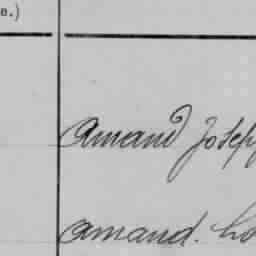 e.)
Amand Joseph
Amand.